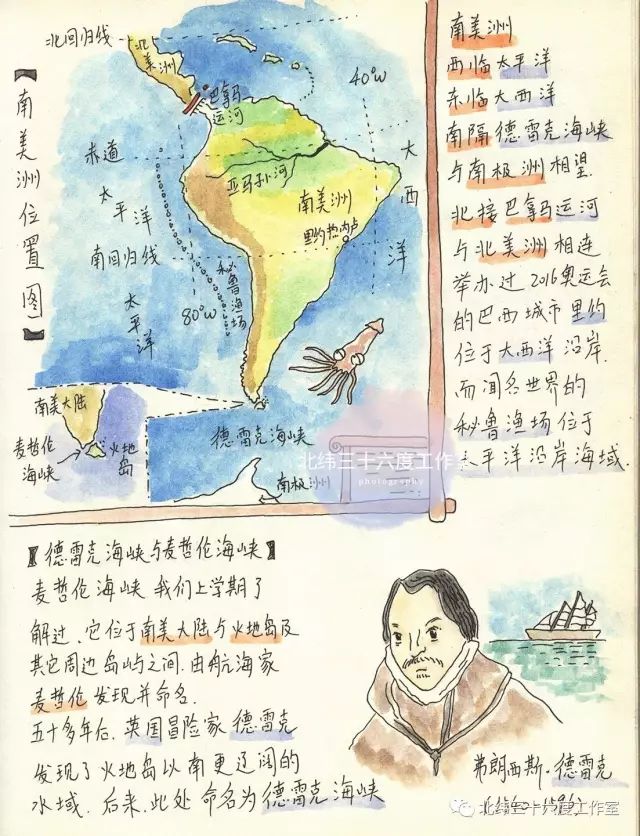 【南美洲位置图】
北回归线
北美洲
巴拿马
运河
40°W
赤道
太平洋
亚马孙河
南美洲
里约热内卢
大西洋
南回归线
太平洋
80°W
秘鲁渔场
南美大陆
麦哲伦
海峡
火地
岛
德雷克海峡
南极洲
北纬三十六度工作室
photography
南美洲
西临太平洋
东临大西洋
南隔德雷克海峡
与南极洲相望.
北接巴拿马运河
与北美洲相连
举办过2016奥运会
的巴西城市里约
位于大西洋沿岸.
而闻名世界的
秘鲁渔场位于
太平洋沿岸海域.
【德雷克海峡与麦哲伦海峡】
麦哲伦海峡 我们上学期了
解过、它位于南美大陆与火地岛及
其它周边岛屿之间.由航海家
麦哲伦发现并命名.
五十多年后.英国冒险家德雷克
发现了火地岛以南更辽阔的
水域.后来.此处命名为德雷克海峡
弗朗西斯·德雷克
北纬三十六度工作室